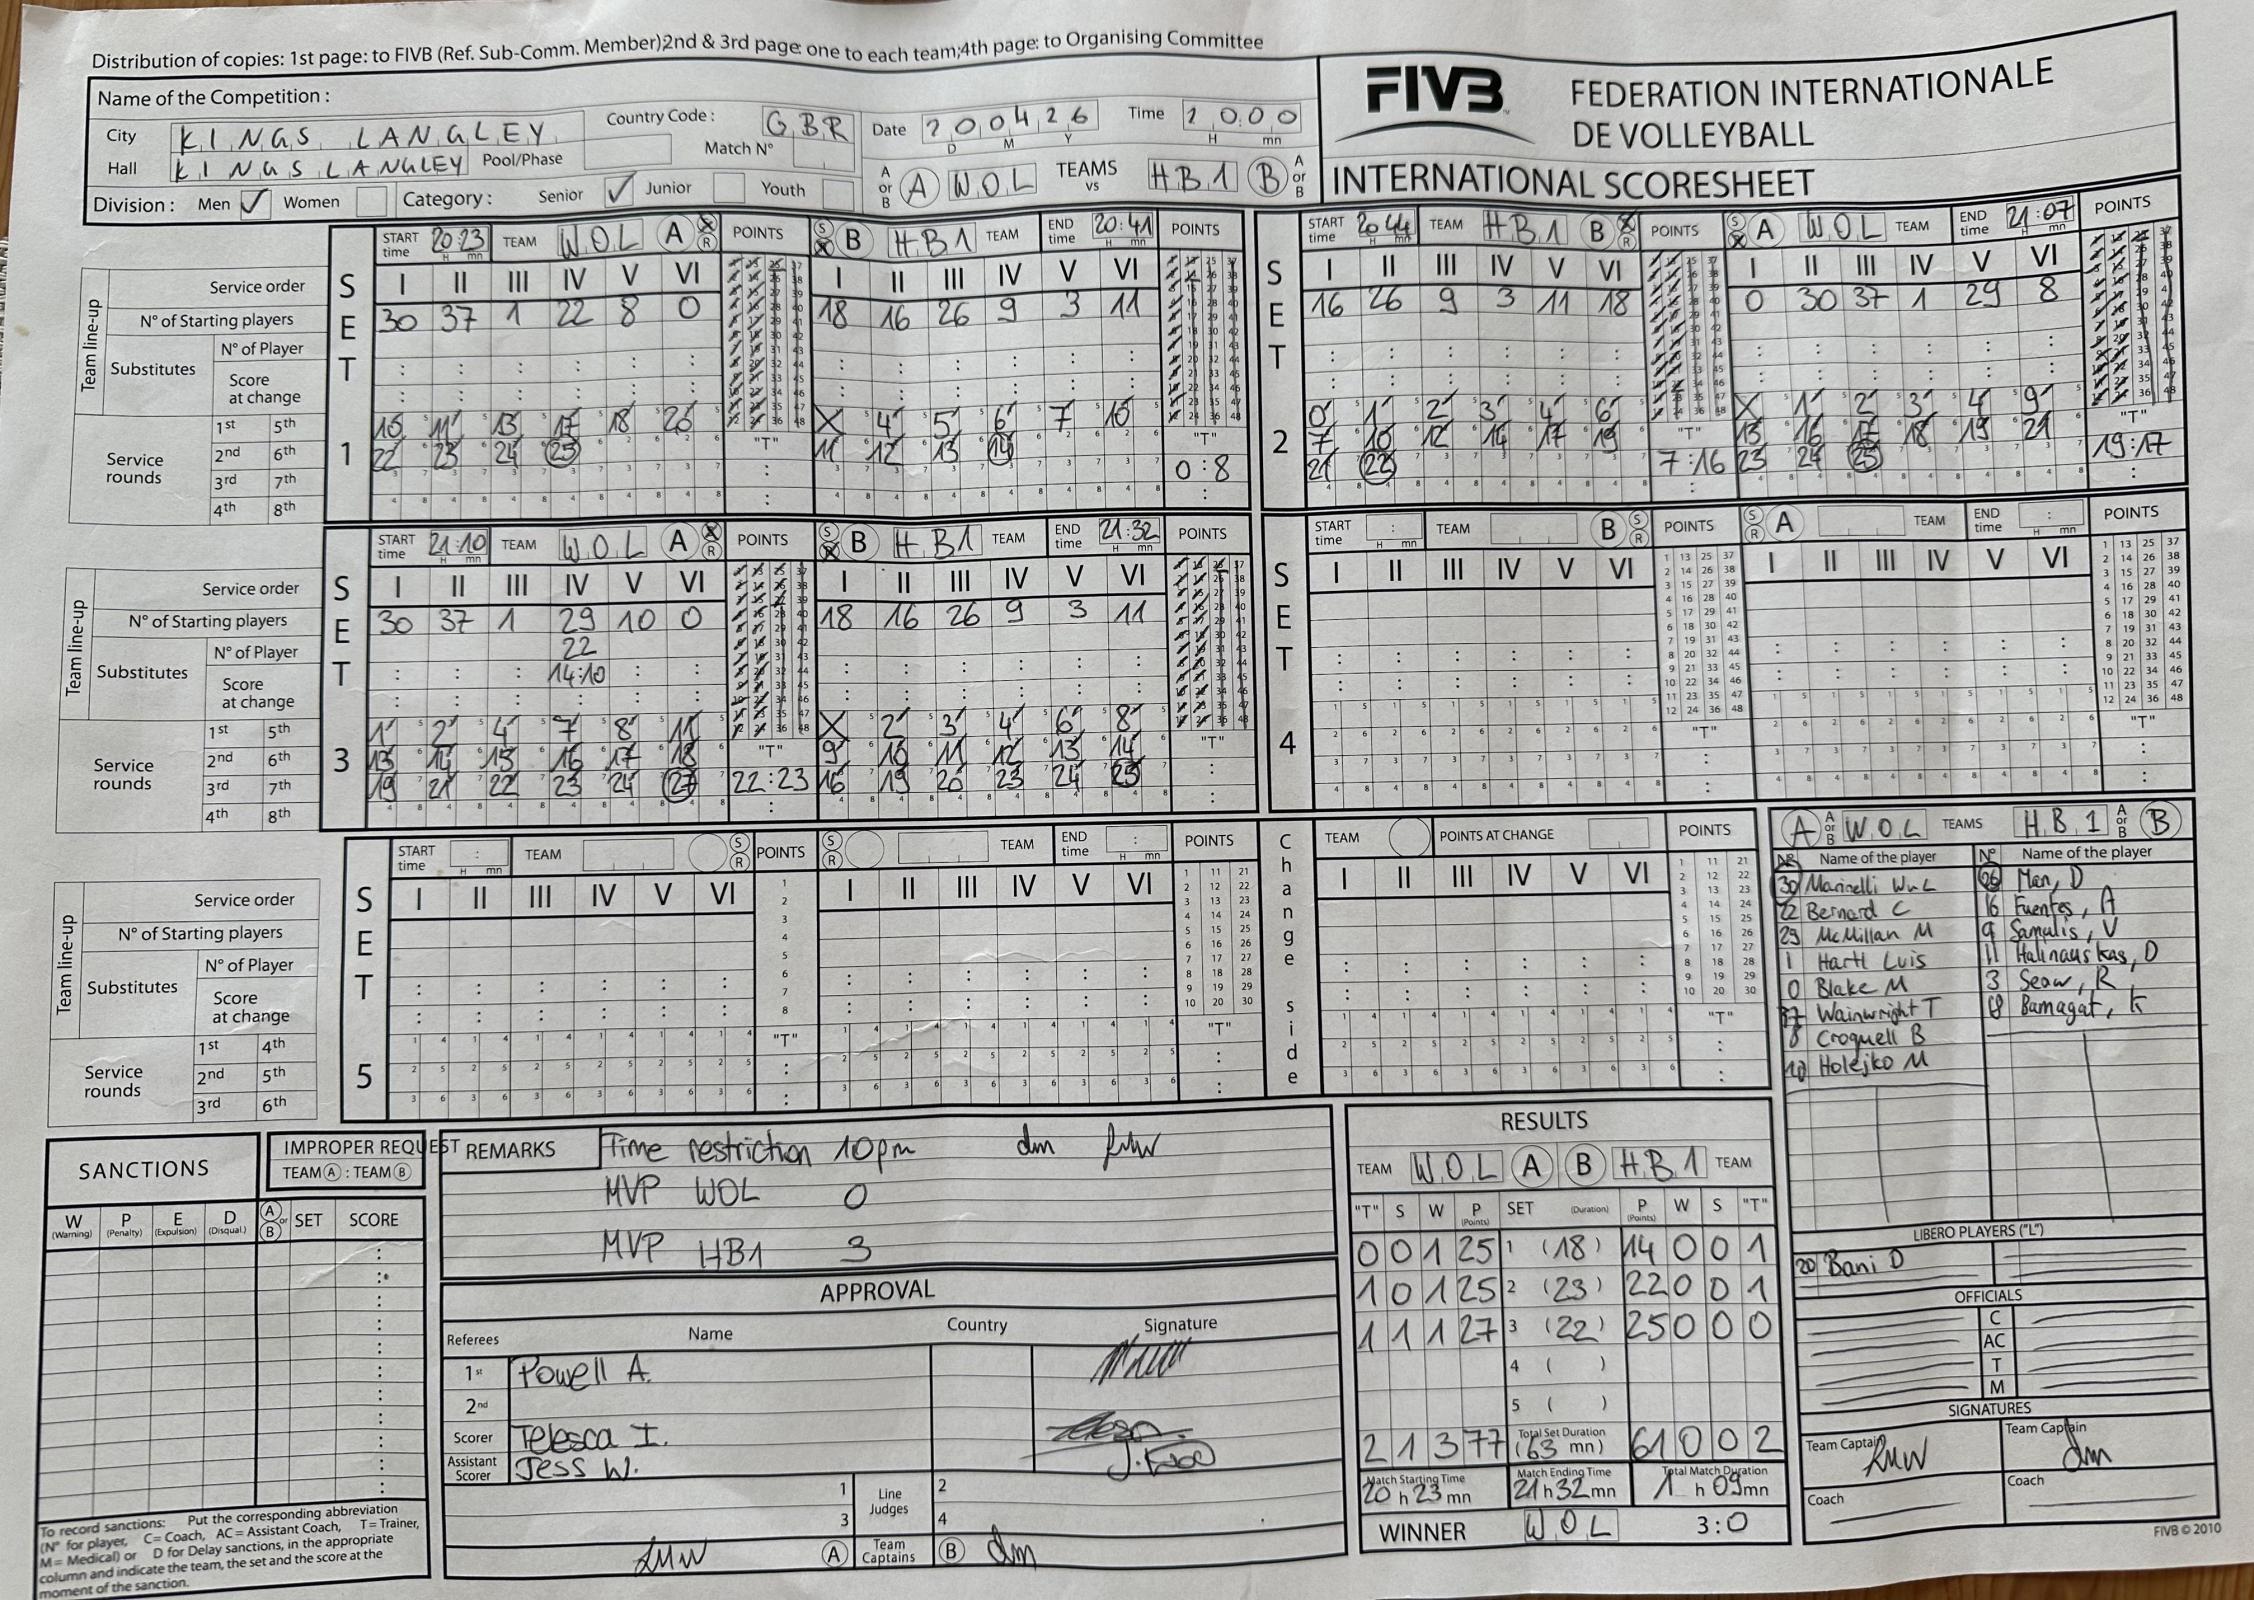 Distribution of copies: 1st page: to FIVB (Ref. Sub-Comm. Member)2nd & 3rd page: one to each team;4th page: to Organising Committee
Name of the Competition :
City KINGS LANGLEY Country Code : GBR Date 200426 Time 20.00
D M Y H mn
Hall KINGS LANGLEY Pool/Phase Match N°
A or B A WOL TEAMS vs HB1 B A or B
Division : Men ✓ Women Category : Senior ✓ Junior Youth
FIVB FEDERATION INTERNATIONALE
DE VOLLEYBALL
INTERNATIONAL SCORESHEET
SET 1
START time 20:23 TEAM WOL A S R POINTS S R B HB1 TEAM END time 20:41 POINTS
Service order I II III IV V VI I II III IV V VI
Team line-up
N° of Starting players 30 37 1 22 8 0 18 16 26 9 3 11
Substitutes N° of Player
Score at change
Service rounds
1st 5th 10 11 13 17 18 20 X 4 5 6 7 10
2nd 6th 22 23 24 25 "T" 11 12 13 14 "T"
3rd 7th 0:8
4th 8th
SET 2
START time 20:44 TEAM HB1 B S R POINTS S R A WOL TEAM END time 21:07 POINTS
I II III IV V VI I II III IV V VI
16 26 9 3 11 18 0 30 37 1 29 8
0 1 2 3 4 6 X 1 2 3 4 9
7 10 12 14 17 19 "T" 13 16 17 18 19 21 "T"
21 22 7:16 23 24 25 19:17
SET 3
START time 21:10 TEAM WOL A S R POINTS S R B HB1 TEAM END time 21:32 POINTS
Service order I II III IV V VI I II III IV V VI
Team line-up
N° of Starting players 30 37 1 29 10 0 18 16 26 9 3 11
Substitutes N° of Player 22
Score at change 14:10
Service rounds
1st 5th 1 2 4 7 8 11 X 2 3 4 6 8
2nd 6th 13 14 15 16 17 18 "T" 9 10 11 12 13 14 "T"
3rd 7th 19 21 22 23 24 27 22:23 16 19 20 23 24 25
4th 8th
SET 4
START time : TEAM B S R POINTS S R A TEAM END time : POINTS
I II III IV V VI I II III IV V VI
"T" "T"
SET 5
START time : TEAM S R POINTS S R TEAM END time : POINTS
Service order I II III IV V VI I II III IV V VI
Team line-up
N° of Starting players
Substitutes N° of Player
Score at change
Service rounds
1st 4th "T" "T"
2nd 5th
3rd 6th
Change side
TEAM POINTS AT CHANGE POINTS
I II III IV V VI
"T"
A A or B WOL TEAMS HB1 A or B B
N° Name of the player N° Name of the player
30 Marinelli WUL 26 Man, D
22 Bernard C 16 Fuentes, A
29 McMillan M 9 Samulis, V
1 Hartl Luis 11 Halinauskas, D
0 Blake M 3 Seow, R
37 Wainwright T 18 Bamagat, K
8 Croquell B
10 Holejko M
LIBERO PLAYERS ("L")
20 Bani D
OFFICIALS
C
AC
T
M
SIGNATURES
Team Captain Team Captain
Coach Coach
FIVB © 2010
SANCTIONS
IMPROPER REQUEST
TEAM A : TEAM B
W (Warning) P (Penalty) E (Expulsion) D (Disqual.) A or B SET SCORE
To record sanctions: Put the corresponding abbreviation
(N° for player, C= Coach, AC= Assistant Coach, T= Trainer,
M= Medical) or D for Delay sanctions, in the appropriate
column and indicate the team, the set and the score at the
moment of the sanction.
REMARKS Time restriction 10pm dm
MVP WOL 0
MVP HB1 3
APPROVAL
Referees Name Country Signature
1st Powell A.
2nd
Scorer Telesca I.
Assistant Scorer Jess W.
1 Line Judges 2
3 4
A Team Captains B dm
RESULTS
TEAM WOL A B HB1 TEAM
"T" S W P (Points) SET (Duration) P (Points) W S "T"
0 0 1 25 1 (18) 14 0 0 1
1 0 1 25 2 (23) 22 0 0 1
1 1 1 27 3 (22) 25 0 0 0
4 ( )
5 ( )
2 1 3 77 Total Set Duration (63 mn) 61 0 0 2
Match Starting Time 20 h 23 mn Match Ending Time 21 h 32 mn Total Match Duration 1 h 09 mn
WINNER WOL 3:0